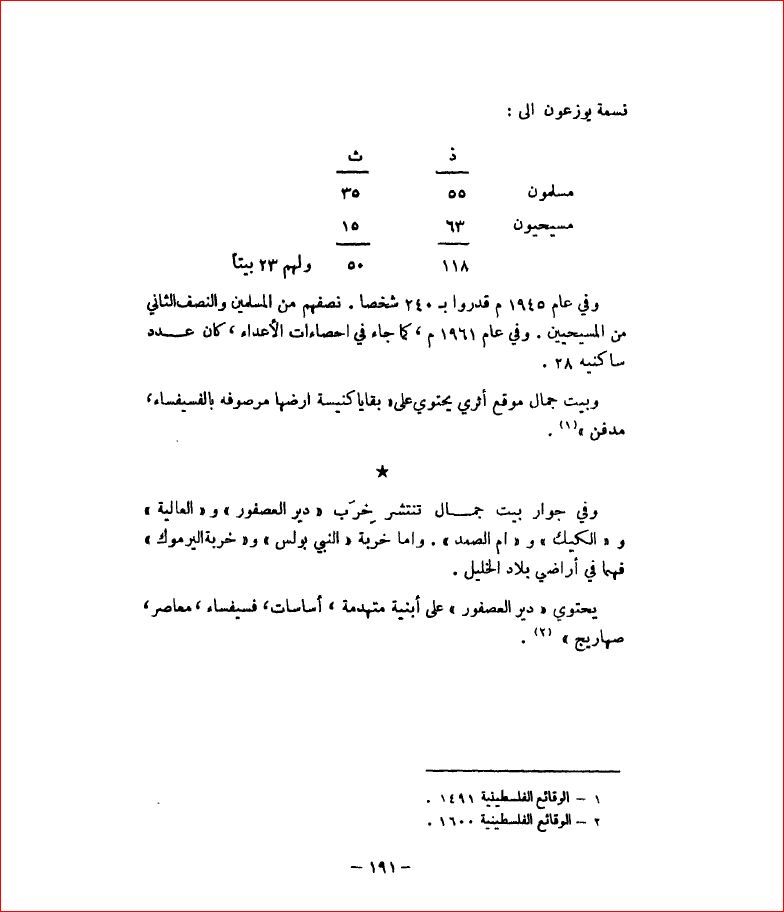 نسمة يوزعون الى :
ذ ث
مسلمون ٥٥ ٣٥
مسيحيون ٦٣ ١٥
١١٨ ٥٠ ولهم ٢٣ بيتاً
وفي عام ١٩٤٥ م قدروا بـ ٢٤٠ شخصا . نصفهم من المسلمين والنصف الثاني
من المسيحيين . وفي عام ١٩٦١ م ، كما جاء في احصاءات الأعداء ، كان عـــدد
ساكنيه ٢٨ .
وبيت جمال موقع أثري يحتوي على « بقايا كنيسة ارضها مرصوفه بالفسيفساء ،
مدفن » (١) .
★
وفي جوار بيت جمـــال تنتشر خِرَب « دير العصفور » و « العالية »
و « الكيك » و « ام الصمد » . واما خربة « النبي بولس » و « خربة اليرموك »
فهما في أراضي بلاد الخليل .
يحتوي « دير العصفور » على أبنية متهدمة ، أساسات ، فسيفساء ، معاصر ،
صهاريج » (٢) .
١ – الوقائع الفلسطينية ١٤٩١ .
٢ – الوقائع الفلسطينية ١٦٠٠ .
– ١٩١ –